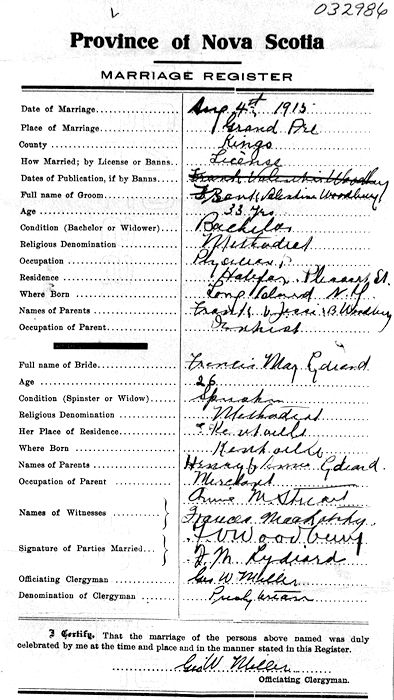 032986
Province of Nova Scotia
MARRIAGE REGISTER
Date of Marriage Aug 4th 1915
Place of Marriage Grand Pre
County Kings
How Married; by License or Banns License
Dates of Publication, if by Banns Frank Valentine Woodbury
Full name of Groom Frank Valentine Woodbury
Age 33 Yrs
Condition (Bachelor or Widower) Bachelor
Religious Denomination Methodist
Occupation Physician
Residence Halifax, Pleasant St.
Where Born Long Island N.Y.
Names of Parents Frank & Jessie B. Woodbury
Occupation of Parent Dentist
Full name of Bride Francis May Lydiard
Age 26
Condition (Spinster or Widow) Spinster
Religious Denomination Methodist
Her Place of Residence Kentville
Where Born Kentville
Names of Parents Henry & Lydiard
Occupation of Parent Merchant
Names of Witnesses Annie M Stuart
Frances
Signature of Parties Married F V Woodbury
F. M. Lydiard
Officiating Clergyman Geo W Miller
Denomination of Clergyman Presbyterian
I Certify, That the marriage of the persons above named was duly
celebrated by me at the time and place and in the manner stated in this Register.
Geo W. Miller
Officiating Clergyman.